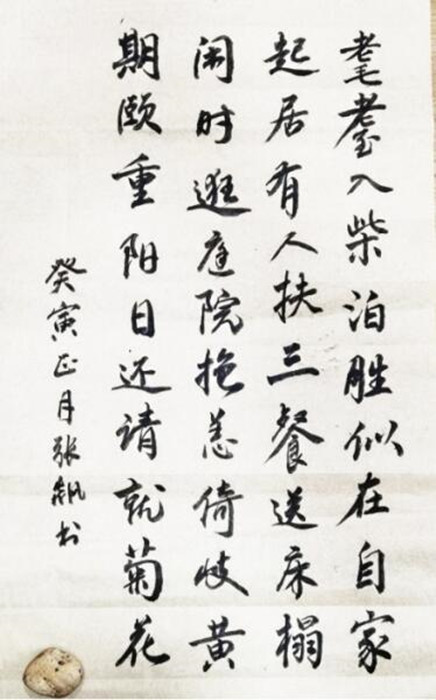 耄耋入柴泊胜似在自家
起居有人扶三餐送床榻
闲时逛庭院抱恙倚岐黄
期颐重阳日还请就菊花
癸寅正月张帆书